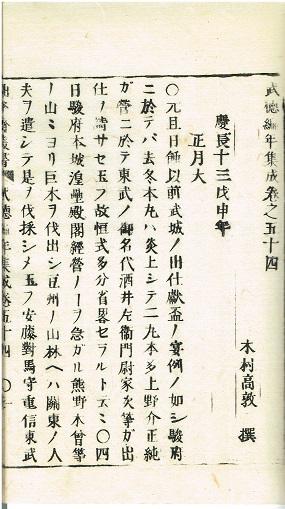 武德編年集成卷之五十四
木村高敦 撰
慶長十三戊申年
正月大
〇元且日餉以前武城ノ出仕獻盃ノ實例ノ如シ駿府
ニ於テバ去冬本丸ハ炎上シテ二ノ丸本多上野介正純
ガ營ニ於テ東武ノ御名代酒井左衞門尉家次等ガ出
仕ノ禱サセ玉フ故恒式多分省畧セラルト云ミ〇四
日駿府本城湟壘殿閣經營ノヿヲ急ガル熊野木曾等
ノ山ミヨリ巨木ヲ伐出シ豆州ノ山林ヘハ關東ノ人
夫ヲ遣シテ是ヲ伐採シメ玉フ安藤對馬守重信東武
武德編年集成卷五十四 〇一